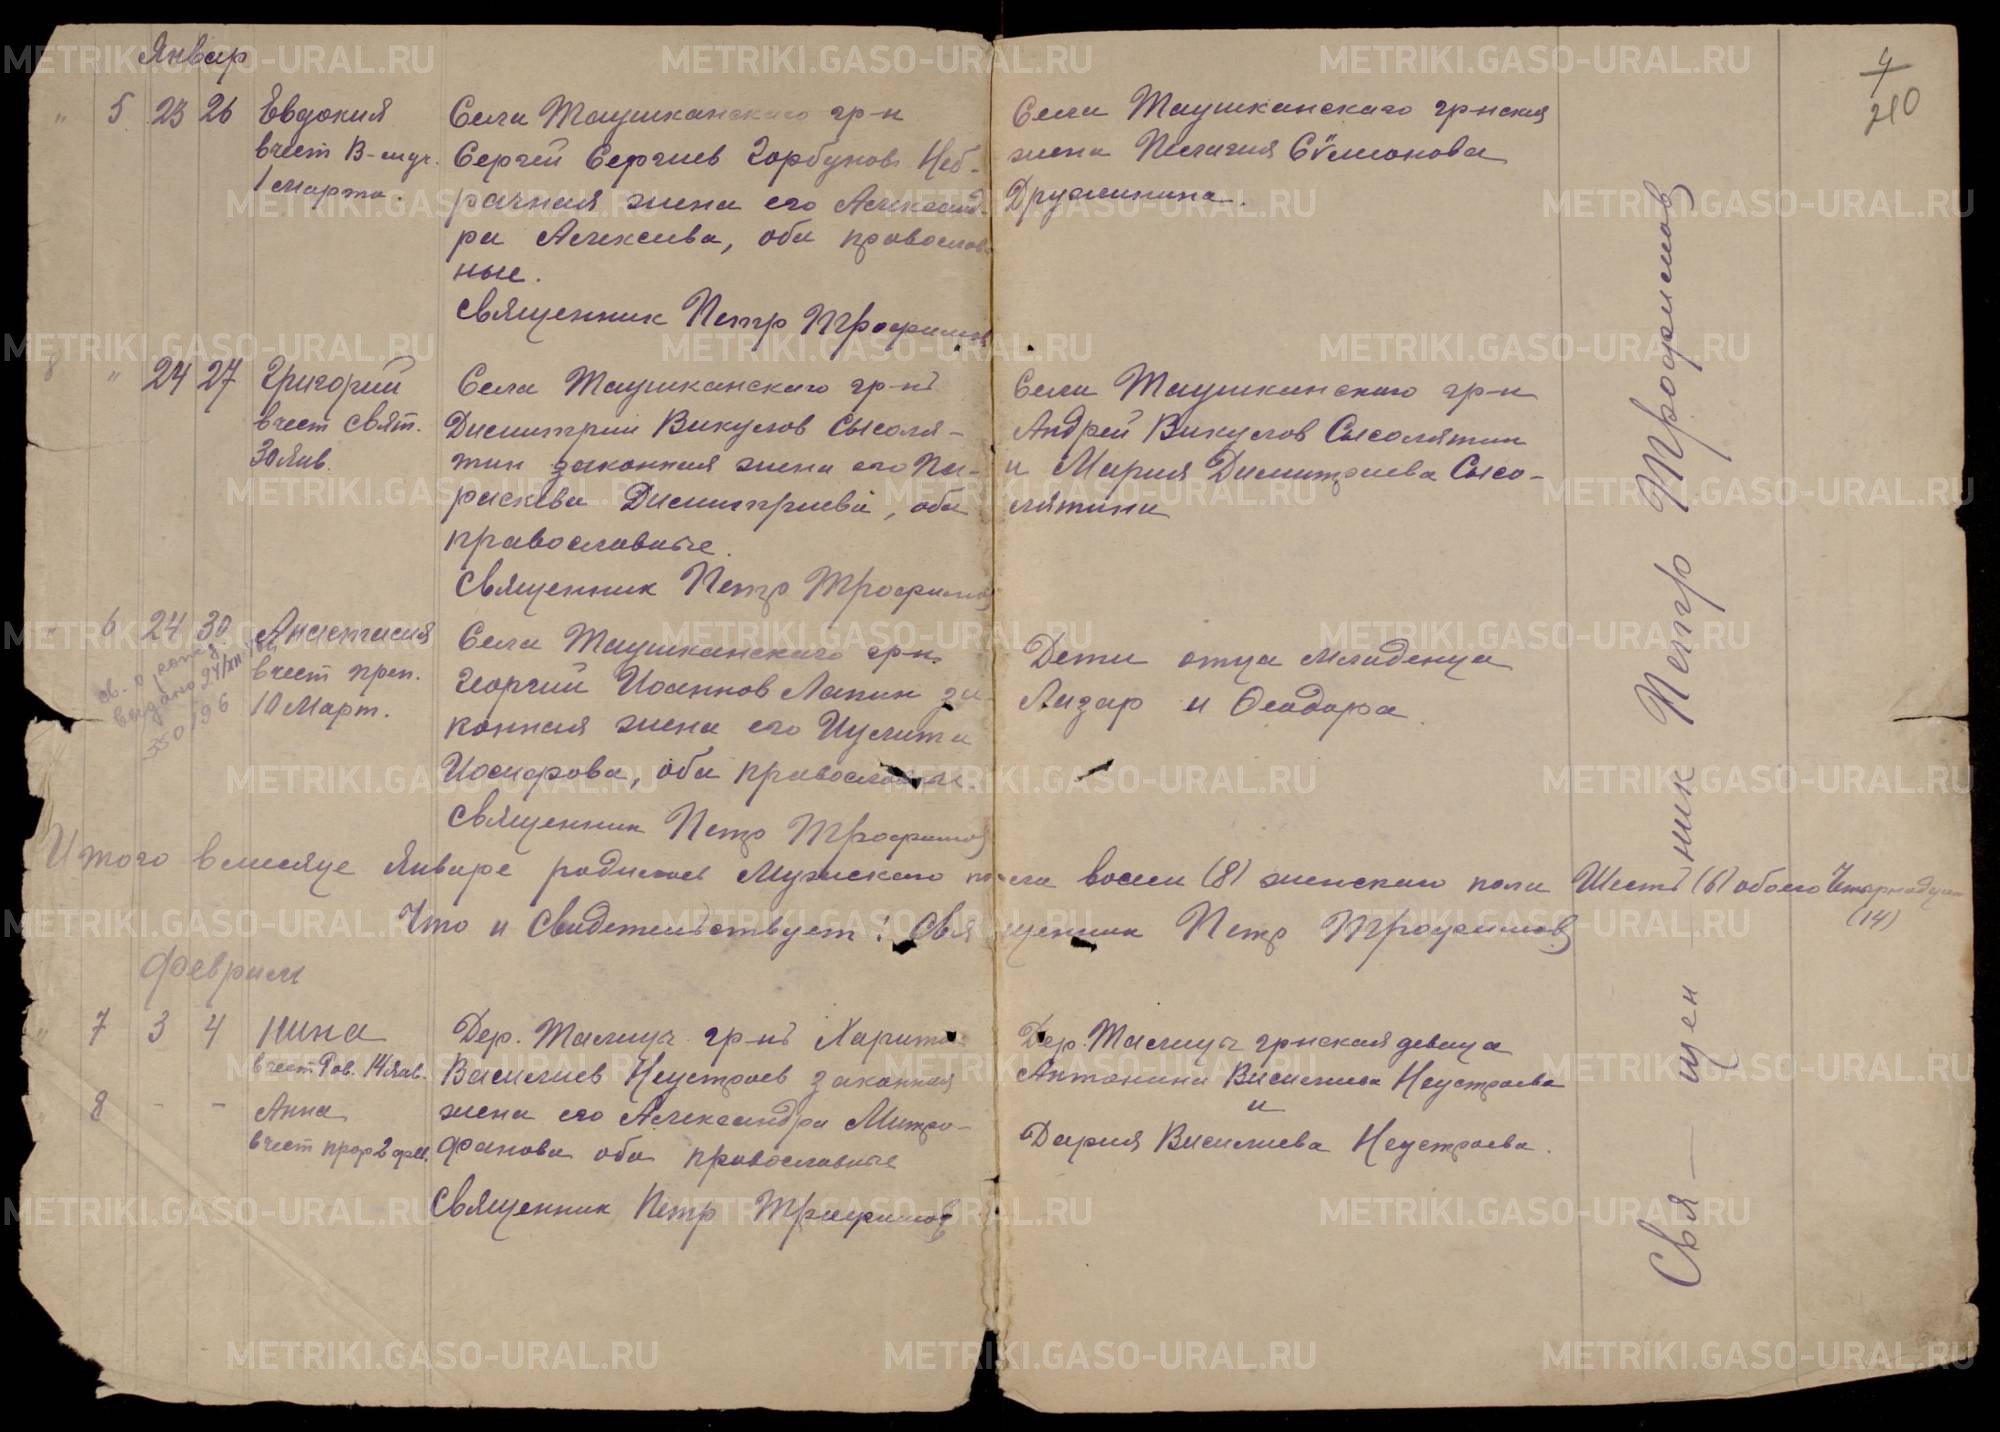 Январ
4
210
" 5 23 26 Евдокия
в чест В-муч.
1 марта.
Села Таушканскаго гр-н
Сергей Сергиев Горбунов Неб-
рачная жена его Александ-
ра Алексиева, оба православ
ные.
Священник Петр Трофимов
Села Таушканскаго гр-нская
жена Пелагия Сѵмионова
Дружинина.
8 " 24 27 Григорий
в чест свят.
30 янв.
Села Таушканскаго гр-нъ
Димитрий Викулов Сысоля-
тин законная жена его Па-
раскева Димитриева, оба
православные.
Священник Петр Трофимов
Села Таушканскаго гр-н
Андрей Викулов Сысолятин
и Мария Димитриева Сысо-
лятина
" 6 24 30 Анастасия
в чест преп.
10 Март.
св. о рожд.
выдано 24/XII
350/96
Села Таушканскаго гр-н.
Георгий Иоаннов Лапин за-
конная жена его Иулита
Иосифова, оба православные.
Священник Петр Трофимов
Дети отца младенца
Лазар и Феодора.
Итого в месяце Январе родилось Мужскаго пола восем (8) женскаго пола Шесть (6) обоего Четырнадцат
(14)
Что и Свидетельствует: Священник Петр Трофимов
Феврали
" 7 3 4 Нина
в чест Рав. 14 янв.
8 - - Анна
в чест прор 2 фев.
Дер. Талица гр-нъ Харито
Василиев Неустроев законная
жена его Александра Митро-
фанова оба православные
Священник Петр Трофимов
Дер. Талицы гр-нская девица
Антонина Василиева Неустроева
и
Дария Василиева Неустроева.
Свя — щен — ник Петр Трофимов
METRIKI.GASO-URAL.RU